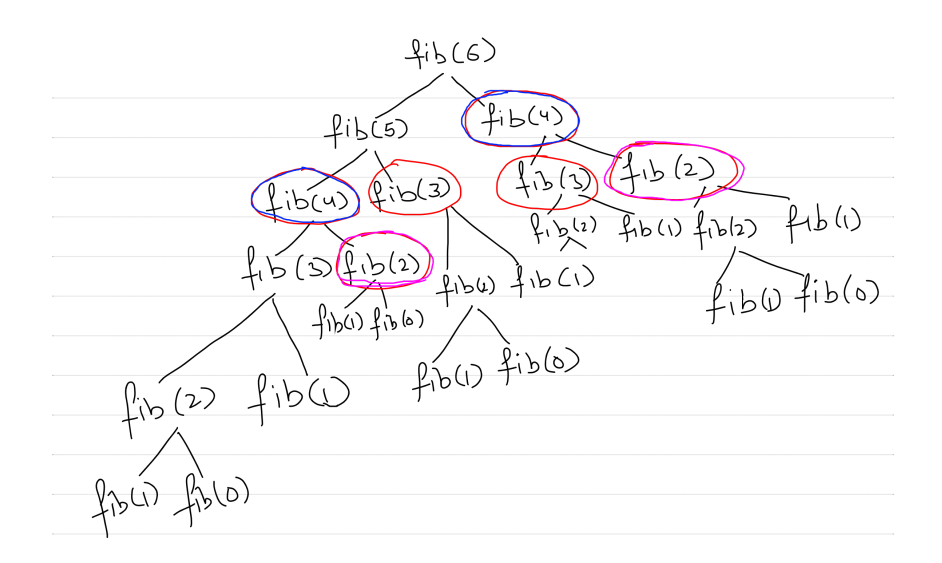 fib(6)
fib(5) fib(4)
fib(4) fib(3) fib(3) fib(2)
fib(2) fib(1) fib(2) fib(1)
fib(3) fib(2) fib(2) fib(1)
fib(1) fib(0) fib(1) fib(0)
fib(1) fib(0)
fib(2) fib(1)
fib(1) fib(0)